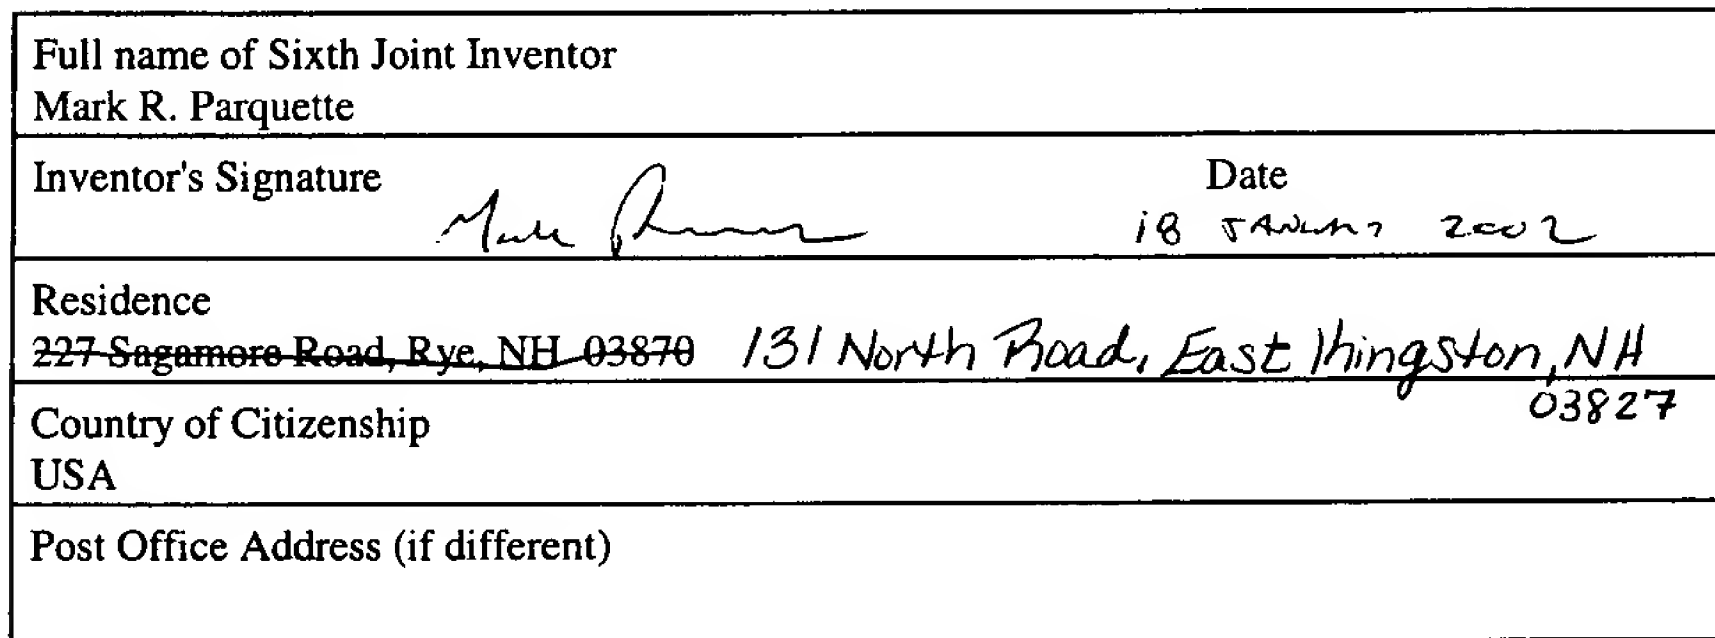 Full name of Sixth Joint Inventor
Mark R. Parquette
Inventor's Signature
Date
Mark
18 JANUARY 2002
Residence
227 Sagamore Road, Rye, NH 03870 131 North Road, East Kingston, NH
03827
Country of Citizenship
USA
Post Office Address (if different)